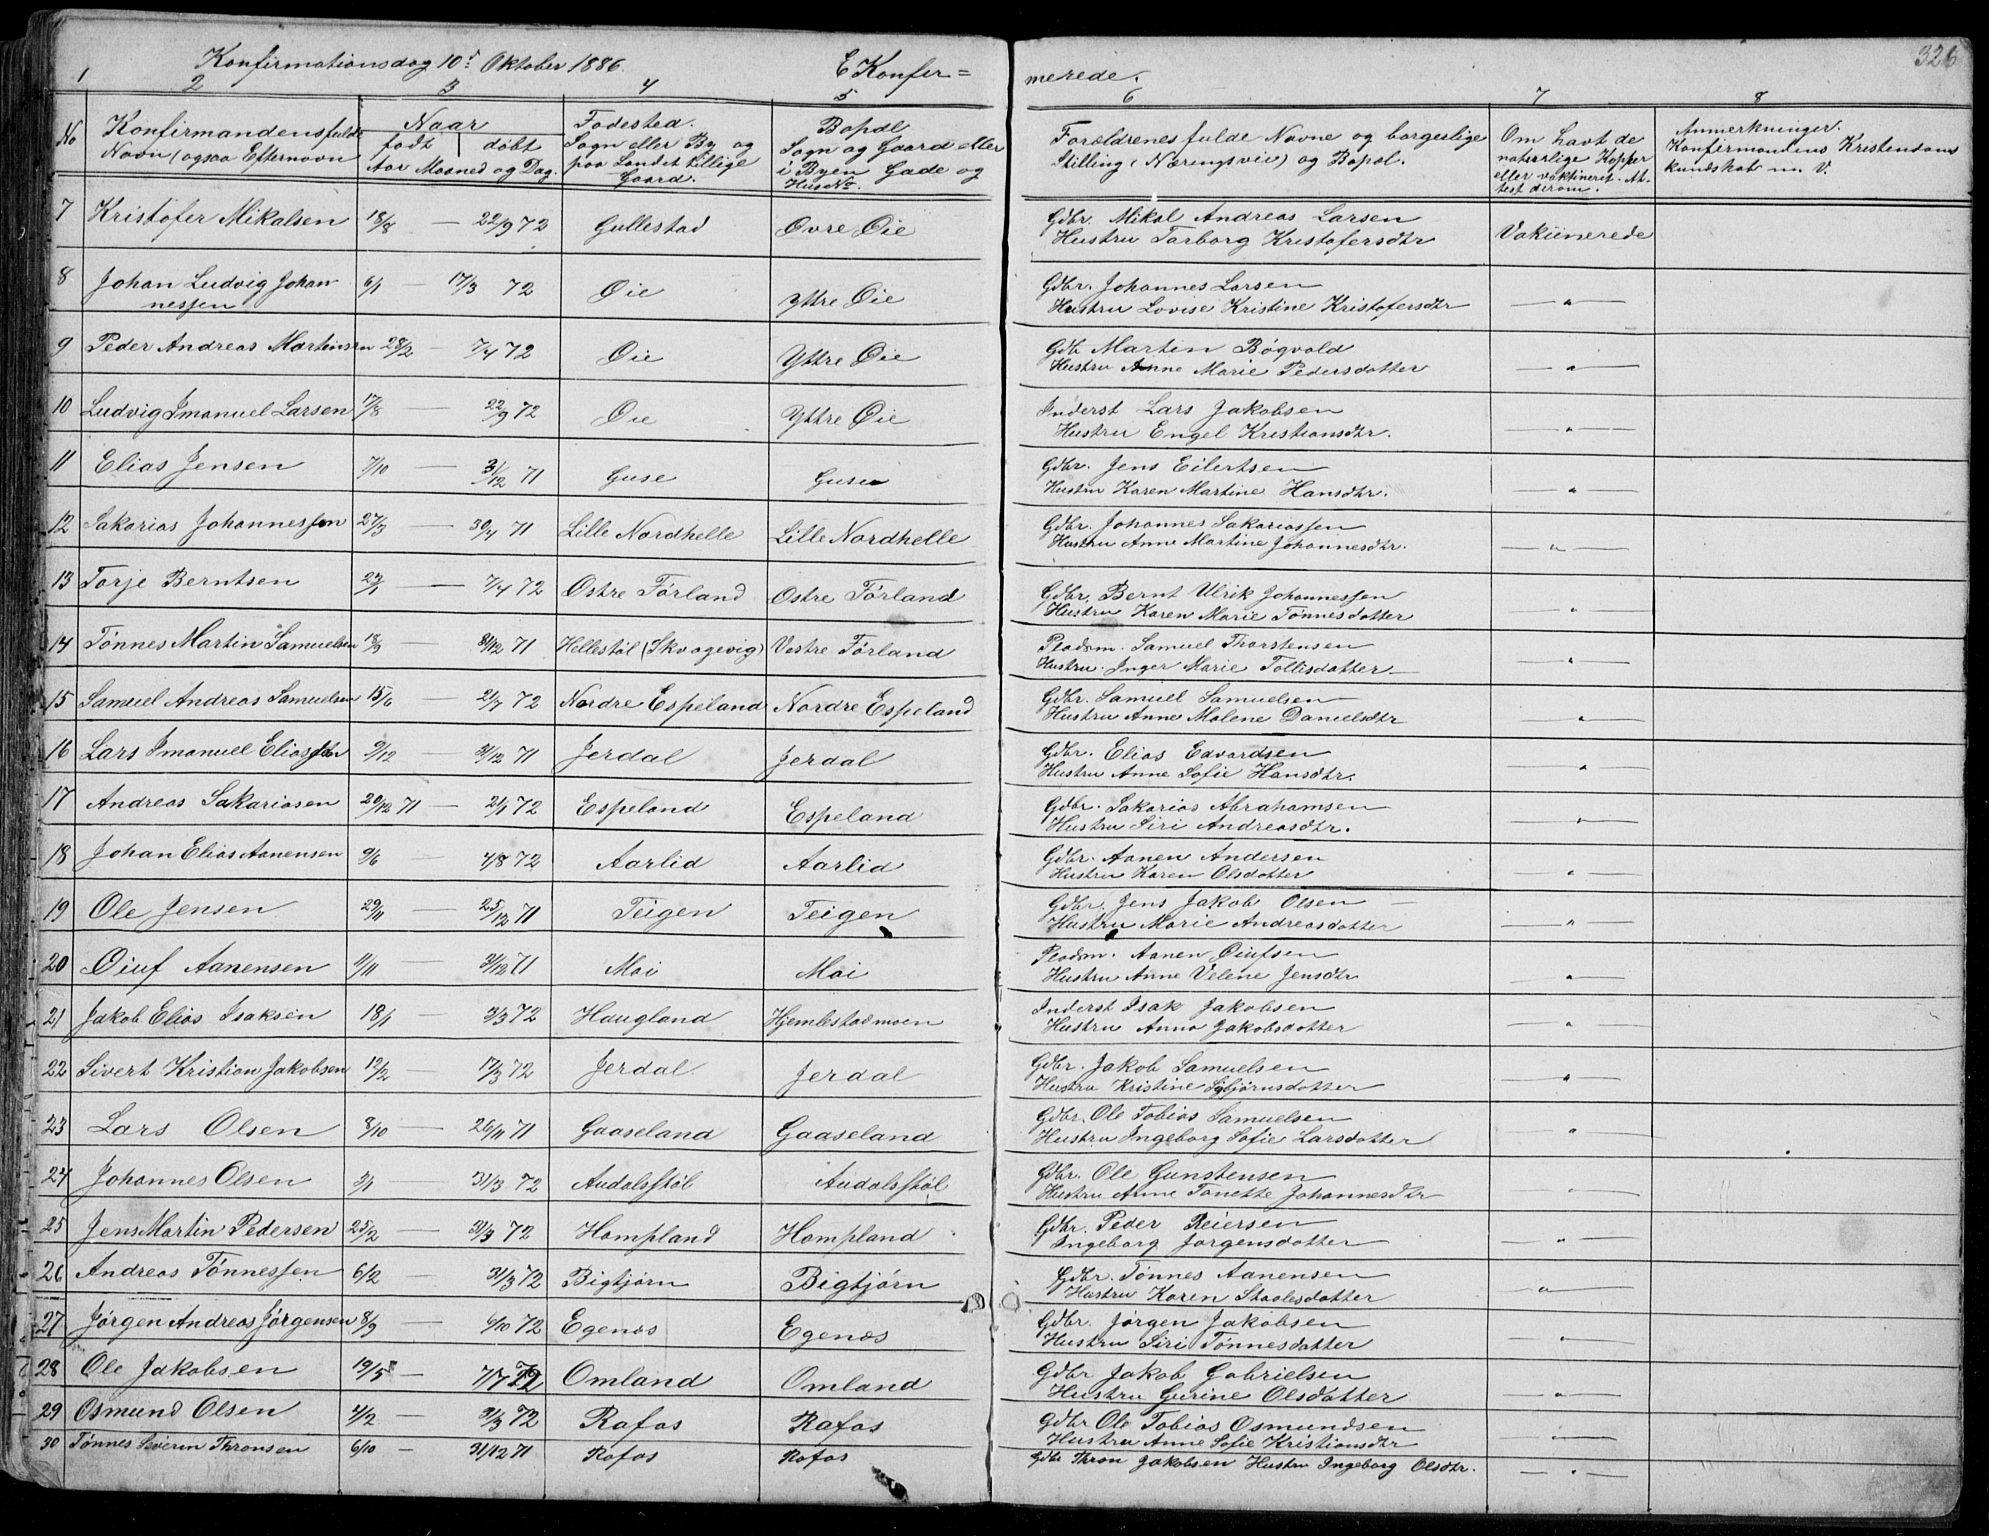 Konfirmationsdag 10d Oktober 1886. E Konfir=
merede. 326
1 2 3 4 5 6 7 8
No Konfirmandens fulde Navn (ogsaa Efternavn Naar født | døbt Aar Maaned og Dag. Fødested. Sogn eller By og paa Landet tillige Gaard. Bopæl Sogn og Gaard eller i Byen Gade og Hus No. Forældrenes fulde Navne og borgerlige Stilling (Næringsvie) og Bopæl. Om havt de naturlige Kopper eller vaktineret. Attest derom. Anmerkninger. Konfirmandens Kristendomskundskab m. V.
7 Kristofer Mikalsen 18/8 — 22/9 72 Gullestad Øvre Øie Gdbr. Mikal Andreas Larsen
Hustru Tarborg Kristofersdtr Vakiinerede
8 Johan Ludvig Johannessen 6/1 — 17/3 72 Øie Yttre Øie Gdbr. Johannes Larsen
Hustru Lovise Kristine Kristofersdtr — " —
9 Peder Andreas Martinsen 28/2 — 7/4 72 Øie Yttre Øie Gdb Martin Bøgvald
Hustru Anne Marie Pedersdatter — " —
10 Ludvig Imanuel Larsen 17/8 — 22/9 72 Øie Yttre Øie Inderst Lars Jakobsen
Hustru Engel Kristiansdtr. — " —
11 Elias Jensen 7/10 — 31/12 71 Guse Guse Gdbr. Jens Eilertsen
Hustru Karen Martine Hansdtr. — " —
12 Sakarias Johannessen 27/3 — 30/4 71 Lille Nordhelle Lille Nordhelle Gdbr. Johannes Sakariassen
Hustru Anne Martine Johannesdtr. — " —
13 Tarje Berntsen — 7/4 72 Østre Førland Østre Førland Gdbr. Bernt Ulrik Johannessen
Hustru Karen Marie Tønnesdatter — " —
14 Tønnes Martin Samuelsen 18/9 31/12 71 Hellestøl (Skvagevig) Vestre Førland Pladsm. Samuel Thorstensen
Hustru. Inger Marie Tollisdatter — " —
15 Samuel Andreas Samuelsen 15/6 — 21/7 72 Nordre Espeland Nordre Espeland Gdbr. Samuel Samuelsen
Hustru Anne Malene Danielsdtr — " —
16 Lars Imanuel Eliassen 9/12 31/12 71 Jerdal Jerdal Gdbr. Elias Edvardsen
Hustru Anne Sofie Hansdtr. — " —
17 Andreas Sakariasen 20/12 71 — 21/1 72 Espeland Espeland Gdbr. Sakarias Abrahamsen
Hustru Siri Andreasdtr. — " —
18 Johan Elias Aanensen 9/6 — 4/8 72 Aarlid Aarlid Gdbr. Aanen Andersen
Hustru Karen Olsdatter — " —
19 Ole Jensen 29/11 — 25/12 71 Teigen Teigen Gdbr. Jens Jakob Olsen
Hustru Marie Andreasdatter — " —
20 Øiuf Aanensen 11/11 — 31/12 71 Moi Moi Pladsm. Aanen Øiufsen
Hustru Anne Velene Jensdtr — " —
21 Jakob Elias Isaksen 18/1 — 3/3 72 Haugland Hjemlestadmoen Inderst Isak Jakobsen
Hustru Anna Jakobsdatter — " —
22 Sivert Kristian Jakobsen 12/2 — 17/3 72 Jerdal Jerdal Gdbr. Jakob Samuelsen
Hustru Kristine Sibjørnsdatter — " —
23 Lars Olsen 8/10 — 26/11 71 Gaaseland Gaaseland Gdbr. Ole Tobias Samuelsen
Hustru Ingeborg Sofie Larsdatter — " —
24 Johannes Olsen 3/1 — 31/3 72 Audalsstøl Audalsstøl Gdbr. Ole Gunstensen
Hustru Anne Tonette Johannesdtr — " —
25 Jens Martin Pedersen 25/2 — 31/3 72 Hompland Hompland Gdbr. Peder Reiersen
Ingeborg Jørgensdatter — " —
26 Andreas Tønnessen 6/2 — 31/3 72 Bigtjørn Bigtjørn Gdbr. Tønnes Aanensen
Hustru Karen Staalesdatter — " —
27 Jørgen Andreas Jørgensen 8/9 — 6/10 72 Egenæs Egenæs Gdbr. Jørgen Jakobsen
Hustru Siri Tønnesdatter — " —
28 Ole Jakobsen 19/5 — 7/7 72 Omland Omland Gdbr Jakob Gabrielsen
Hustru Gurine Olsdatter — " —
29 Osmund Olsen 4/2 — 31/3 72 Rafos Rafos Gdbr Ole Tobias Osmundsen
Hustru Anne Sofie Kristiansdtr — " —
30 Tønnes Severin Thronsen 6/10 — 31/12 71 Rafos Rafos Gdbr Thron Jakobsen Hustru Ingeborg Olsdtr. — " —